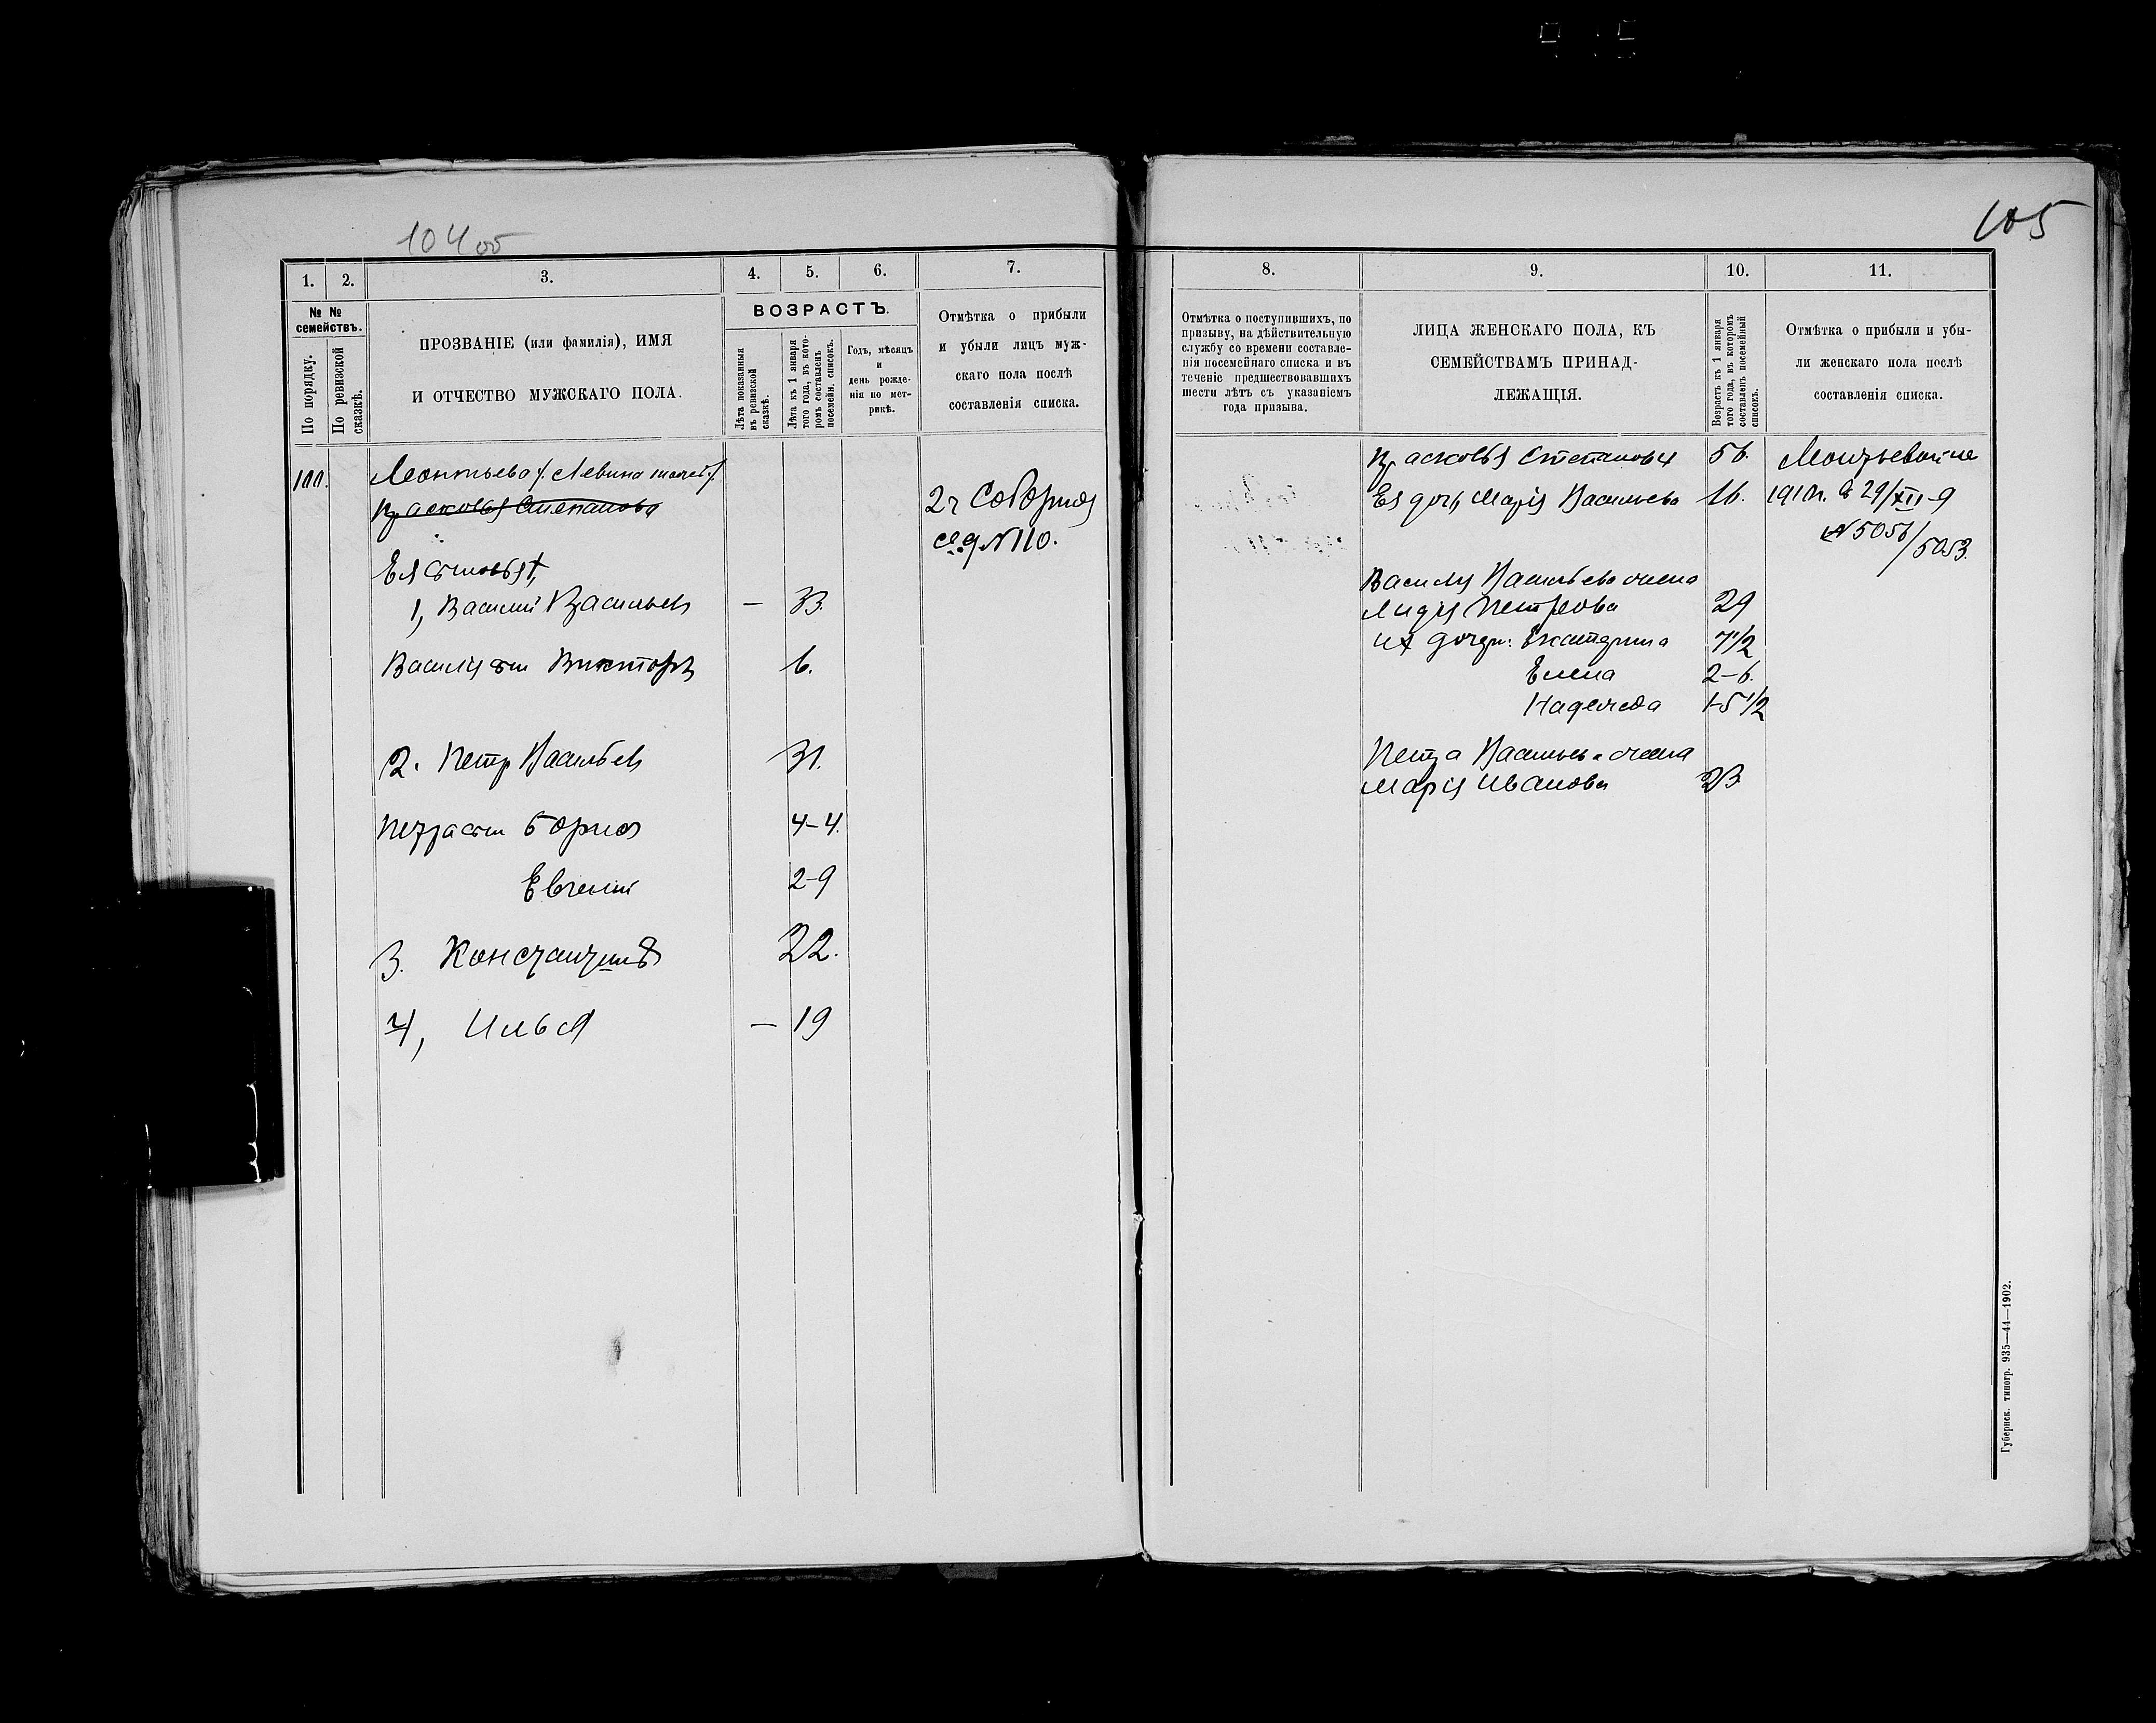 104 об
1.
2.
3.
4.
5.
6.
7.
№ №
семействъ.
По порядку.
По ревизской
сказкѣ.
ПРОЗВАНІЕ (или фамилія), ИМЯ
И ОТЧЕСТВО МУЖСКАГО ПОЛА.
ВОЗРАСТЪ.
Лѣта показанныя
въ ревизской
сказкѣ.
Лѣта къ 1 января
того года, въ кото-
ромъ составленъ
посемейн. списокъ.
Годъ, мѣсяцъ
и
день рожде-
нія по мет-
рикѣ.
Отмѣтка о прибыли
и убыли лицъ муж-
скаго пола послѣ
составленія списка.
100.
Леонтьева /: Левина тожеъ:/
Прасковья Степанова
2 ч Соборная
№ 110.
Ея сыновья,
1, Василий Васильевъ — 33.
Василія сын Викторъ 6.
2. Петр Васильевъ 31.
Петра сын Борисъ 4-4.
Евгений 2-9
3. Константинъ 22.
4, Илья — 19
105
8.
9.
10.
11.
Отмѣтка о поступившихъ, по
призыву, на дѣйствительную
службу со времени составле-
нія посемейнаго списка и въ
теченіе предшествовавшихъ
шести лѣтъ съ указаніемъ
года призыва.
ЛИЦА ЖЕНСКАГО ПОЛА, КЪ
СЕМЕЙСТВАМЪ ПРИНАД-
ЛЕЖАЩІЯ.
Возрастъ къ 1 января
того года, въ которомъ
составленъ посемейный
списокъ.
Отмѣтка о прибыли и убы-
ли женскаго пола послѣ
составленія списка.
Прасковья Степановя 56.
Ея дочь Марія Васильева 16. 1910г. 29/XII-9
№ 5056/5053.
Василія Васильева жена
Лидія Петрова 29
их дочери: Екатерина 7 1/2
Елена 2-6.
Надежда 1-5 1/2
Петра Васильева жена
Марія Иванова 23
Губернск. типогр. 935—44—1902.